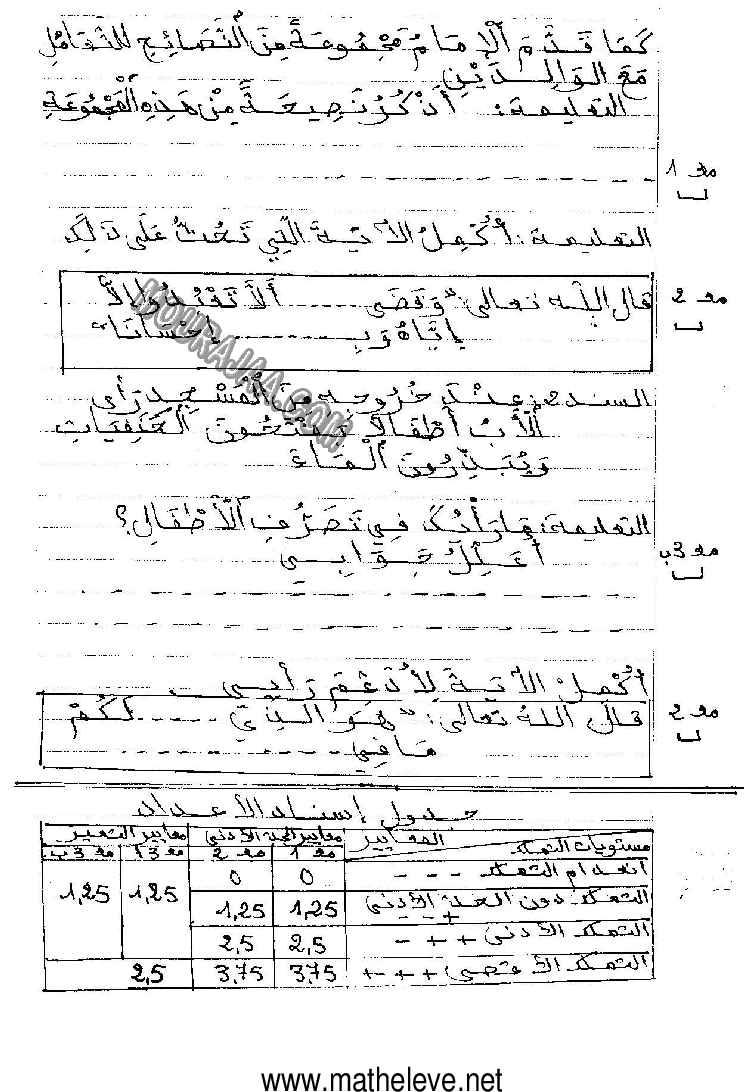 كَمَا قَدَّمَ الْإِمَامُ مَجْمُوعَةً مِنَ النَّصَائِحِ لِلتَّعَامُلِ
مَعَ الْوَالِدَيْنِ
التعليمة: أَذْكُرُ نَصِيحَةً مِنْ هَذِهِ الْمَجْمُوعَةِ
مع 1
التعليمة: أُكْمِلُ الآيَةَ الَّتِي تَحُثُّ عَلَى ذَلِكَ
مع 2
قال اللّه تعالى: "وَقَضَى ...... أَلَّا تَعْبُدُوا إِلَّا
إِيَّاهُ وَبِـ ........... إِحْسَانًا"
MOURAJAA.COM
السند 2: عِنْدَ خُرُوجِهِ مِنَ الْمَسْجِدِ رَأَى
الْأَبُ أَطْفَالًا يَفْتَحُونَ الْحَنَفِيَّاتِ
وَيُبَذِّرُونَ الْمَاءَ
التعليمة: مَا رَأْيُكَ فِي تَصَرُّفِ الْأَطْفَالِ؟
أُعَلِّلُ جَوَابِي
مع 3ب
أُكْمِلُ الآيَةَ لِأُدَعِّمَ رَأْيِي
مع 2
قَالَ اللهُ تَعَالَى: "هُوَ الَّذِي ...... لَكُمْ
مَا فِي ..............
جدول إسناد الأعداد
المعايير معايير الحد الأدنى معايير التميز
مستويات التملك مع 1 مع 2 مع 3أ مع 3ب
انعدام التملك - - - 0 0
التملك دون الحد الأدنى + - - 1,25 1,25 1,25 1,25
التملك الأدنى + + - 2,5 2,5
التملك الأقصى + + + 3,75 3,75 2,5
www.matheleve.net